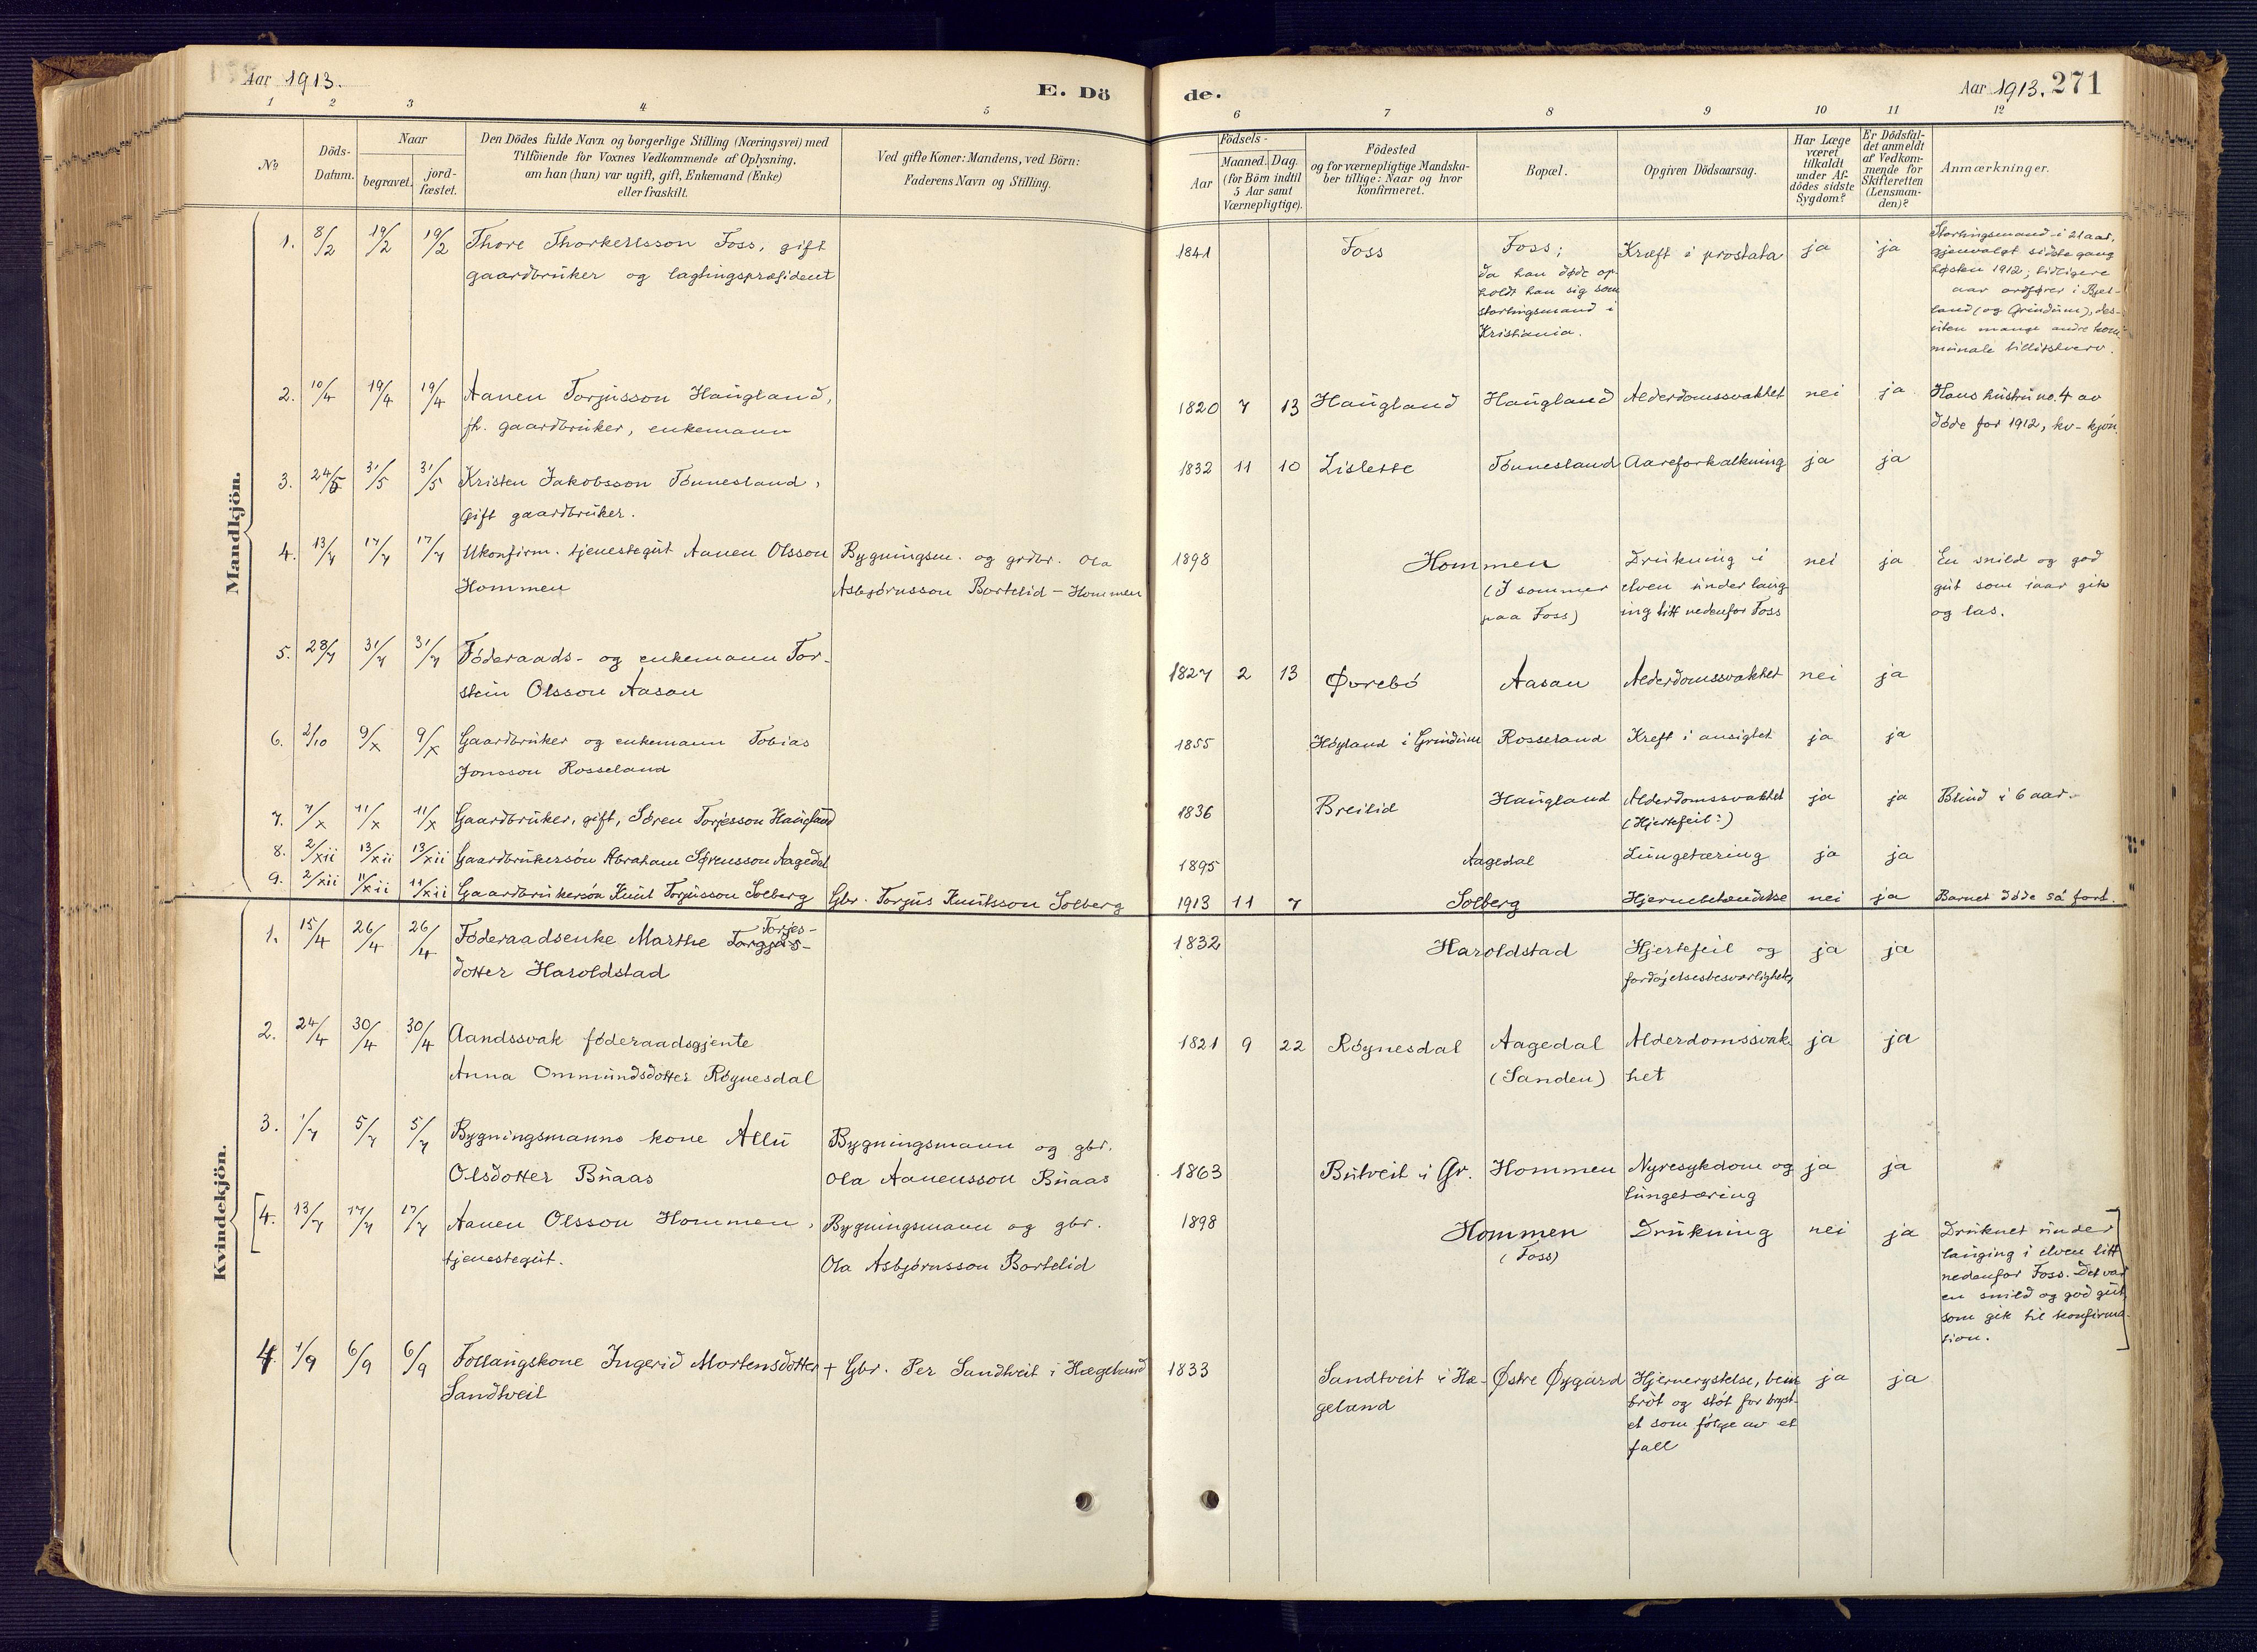 Aar 1913.
E. Dö
de.
Aar 1913. 271
1 2 3 4 5 6 7 8 9 10 11 12
No.
Döds-
Datum.
Naar
begravet.
jord-
fæstet.
Den Dödes fulde Navn og borgerlige Stilling (Næringsvei) med
Tilföiende for Voxnes Vedkommende af Oplysning,
om han (hun) var ugift, gift, Enkemand (Enke)
eller fraskilt.
Ved gifte Koner: Mandens, ved Börn:
Faderens Navn og Stilling.
Födsels-
Aar
Maaned. Dag.
(for Börn indtil
5 Aar samt
Værnepligtige).
Födested
og for værnepligtige Mandska-
ber tillige: Naar og hvor
konfirmeret.
Bopæl.
Opgiven Dödsaarsag.
Har Læge
været
tilkaldt
under Af-
dödes sidste
Sygdom?
Er Dödsfal-
det anmeldt
af Vedkom-
mende for
Skifteretten
(Lensman-
den)?
Anmærkninger.
Mandkjön.
1. 8/2 19/2 19/2 Thore Thorkellsson Foss, gift
gaardbruker og lagtingspræsident
1841 Foss
Foss;
da han døde op-
holdt han sig som
stortingsmand i
Kristiania.
Kræft i prostata ja ja
Stortingsmand i 21 aar,
gjenvalgt sidste gang
høsten 1912; tidligere
aar ordfører i Bjel-
land (og Grindum), des-
uten mange andre kom-
munale tillitshverv.
2. 10/4 19/4 19/4 Aanen Torjusson Haugland,
fh. gaardbruker, enkemann
1820 7 13 Haugland Haugland Alderdomssvakhet nei ja
Hans hustru no. 4 av
døde for 1912, kv-kjøn.
3. 24/5 31/5 31/5 Kristen Jakobsson Tønnesland,
gift gaardbruker.
1832 11 10 Lislette Tønnesland Aareforkalkning ja ja
4. 13/7 17/7 17/7 Ukonfirm. tjenestegut Aanen Olsson
Hommen
Bygningsm. og grdbr. Ola
Asbjørnsson Bortelid - Hommen
1898 Hommen
(I sommer
paa Foss)
Drukning i
elven under laug
ing litt nedenfor Foss
nei ja
En snild og god
gut som iaar gik
og las.
5. 28/7 31/7 31/7 Føderaads- og enkemann Tor-
stein Olsson Aasan
1827 2 13 Øvrebø Aasan Alderdomssvakhet nei ja
6. 2/10 9/X 9/X Gaardbruker og enkemann Tobias
Jonsson Rosseland
1855 Høyland i Grindum Rosseland Kreft i ansigtet ja ja
7. 7/X 11/X 11/X Gaardbruker, gift, Søren Torjesson Haugland
1836 Breilid Haugland Alderdomssvakhet
(Hjertefeil?)
ja ja Blind i 6 aar.
8. 2/XII 13/XII 13/XII Gaardbrukersøn Abraham Sørensson Aagedal
1895 Aagedal Lungetæring ja ja
9. 2/XII 11/XII 11/XII Gaardbrukersøn Knut Torjusson Solberg Gbr. Torjus Knutsson Solberg
1913 11 7 Solberg Hjernebetændelse nei ja Barnet døde så fort.
Kvindekjön.
1. 15/4 26/4 26/4 Føderaadsenke Marthe Torgjøs-
Torjes-
dotter Haroldstad
1832 Haroldstad Hjertefeil og
fordøjelsesbesværligheter
ja ja
2. 24/4 30/4 30/4 Aandssvak føderaadsgjente
Anna Ommundsdotter Røynesdal
1821 9 22 Røynesdal Aagedal
(Sanden)
Alderdomssvak-
het
ja ja
3. 1/7 5/7 5/7 Bygningsmanns kone Allu
Olsdotter Buaas
Bygningsmann og gbr.
Ola Aanensson Buaas
1863 Butveit i Gr. Hommen Nyresykdom og
lungetæring
ja ja
[4. 13/7 17/7 17/7 Aanen Olsson Hommen,
tjenestegut.
Bygningsmann og gbr.
Ola Asbjørnsson Bortelid
1898 Hommen
(Foss)
Drukning nei ja
Druknet under
lauging i elven litt
nedenfor Foss. Det var
en snild og god gut,
som gik til konfirma-
sion.]
4. 1/9 6/9 6/9 Follaugskone Ingerid Mortensdotter
Sandtveit
+ Gbr. Per Sandtveit i Hægeland
1833 Sandtveit i Hæ-
geland
Østre Øygard
Hjernerystelse, bein-
brot og støt for bryst-
et som følge av et
fall
ja ja